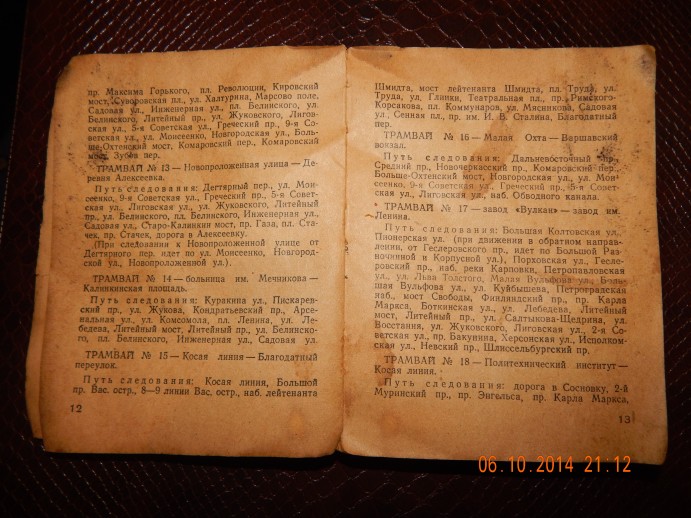 пр. Максима Горького, пл. Революции, Кировский
мост, Суворовская пл., ул. Халтурина, Марсово поле,
Садовая ул., Инженерная ул., пл. Белинского, ул.
Белинского, Литейный пр., ул. Жуковского, Лигов-
ская ул., 5-я Советская ул., Греческий пр., 9-я Со-
ветская ул., ул. Моисеенко, Новгородская ул., Боль-
ше-Охтенский мост, Комаровский пер., Комаровский
мост, Зубов пер.
ТРАМВАЙ № 13 — Новопроложенная улица — Де-
ревня Алексеевка.
Путь следования: Дегтярный пер., ул. Мои-
сеенко, 9-я Советская ул., Греческий пр., 5-я Совет-
ская ул., Лиговская ул., ул. Жуковского, Литейный
пр., ул. Белинского, пл. Белинского, Инженерная ул.,
Садовая ул., Старо-Калинкин мост, пр. Газа, пл. Ста-
чек, пр. Стачек, дорога в Алексеевку.
(При следовании к Новопроложенной улице от
Дегтярного пер. идет по ул. Моисеенко, Новгород-
ской ул., Новопроложенной ул.).
ТРАМВАЙ № 14 — больница им. Мечникова —
Калинкинская площадь.
Путь следования: Куракина ул., Пискарев-
ский пр., ул. Жукова, Кондратьевский пр., Арсе-
нальная ул., ул. Комсомола, пл. Ленина, ул. Ле-
бедева, Литейный мост, Литейный пр., ул. Белинско-
го, пл. Белинского, Инженерная ул., Садовая ул.
ТРАМВАЙ № 15 — Косая линия — Благодатный
переулок.
Путь следования: Косая линия, Большой
пр. Вас. остр., 8—9 линии Вас. остр., наб. лейтенанта
12
Шмидта, мост лейтенанта Шмидта, пл. Труда, ул.
Труда, ул. Глинки, Театральная пл., пр. Римского-
Корсакова, пл. Коммунаров, ул. Мясникова, Садовая
ул., Сенная пл., пр. им. И. В. Сталина, Благодатный
пер.
ТРАМВАЙ № 16 — Малая Охта — Варшавский
вокзал.
Путь следования: Дальневосточный пр.,
Средний пр., Новочеркасский пр., Комаровский пер.,
Больше-Охтенский мост, Новгородская ул., ул. Мои-
сеенко, 9-я Советская ул., Греческий пр., 5-я Совет-
ская ул., Лиговская ул., наб. Обводного канала.
ТРАМВАЙ № 17 — завод «Вулкан» — завод им.
Ленина.
Путь следования: Большая Колтовская ул.,
Пионерская ул. (при движении в обратном направ-
лении, от Геслеровского пр., идет по Большой Раз-
ночинной и Корпусной ул.), Порховская ул., Гесле-
ровский пр., наб. реки Карповки, Петропавловская
ул., ул. Льва Толстого, Малая Вульфова ул., Боль-
шая Вульфова ул., ул. Куйбышева, Петроградская
наб., мост Свободы, Финляндский пр., пр. Карла
Маркса, Боткинская ул., ул. Лебедева, Литейный
мост, Литейный пр., ул. Салтыкова-Щедрина, ул.
Восстания, ул. Жуковского, Лиговская ул., 2-я Со-
ветская ул., пр. Бакунина, Херсонская ул., Исполком-
ская ул., Невский пр., Шлиссельбургский пр.
ТРАМВАЙ № 18 — Политехнический институт —
Косая линия.
Путь следования: дорога в Сосновку, 2-й
Муринский пр., пр. Энгельса, пр. Карла Маркса,
13
06.10.2014 21:12